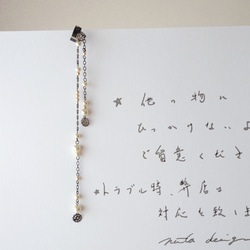 * 他の物に
ひっかけないよ
ご留意くださ
*トラブル時、弊店は
対応を致しま
nuta desig